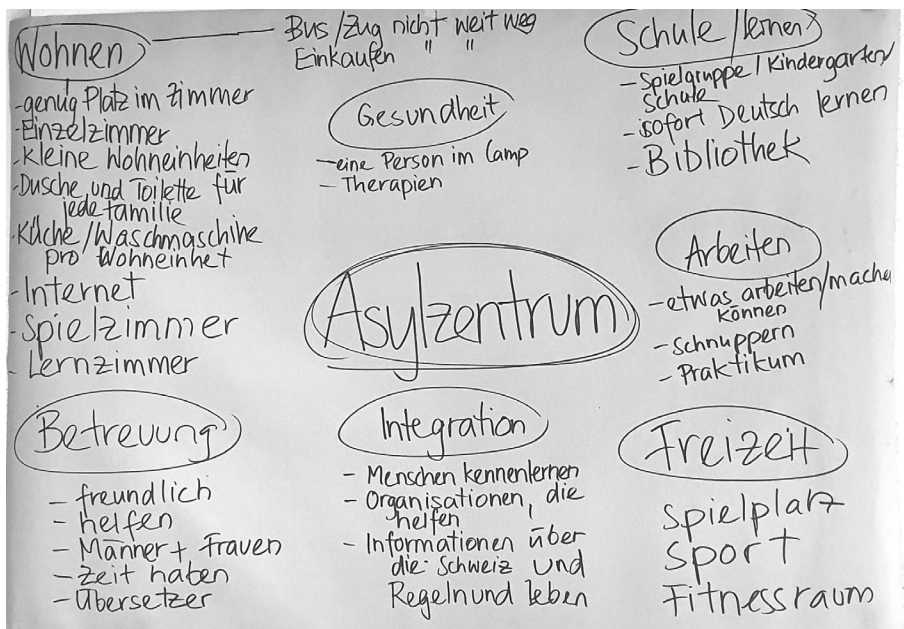 Wohnen
Bus/Zug nicht weit weg
Einkaufen " "
- genug Platz im Zimmer
- Einzelzimmer
- kleine Wohneinheiten
- Dusche und Toilette für
jede familie
- Küche/Waschmaschine
pro Wohneinheit
- Internet
- Spielzimmer
- Lernzimmer
Gesundheit
- eine Person im Camp
- Therapien
Schule/lernen
- Spielgruppe/Kindergarten/
Schule
- sofort Deutsch lernen
- Bibliothek
Asylzentrum
Arbeiten
- etwas arbeiten/machen
können
- Schnuppern
- Praktikum
Betreuung
- freundlich
- helfen
- Männer + Frauen
- Zeit haben
- Übersetzer
Integration
- Menschen kennenlernen
- Organisationen, die
helfen
- Informationen über
die Schweiz und
Regeln und leben
Freizeit
Spielplatz
Sport
Fitnessraum